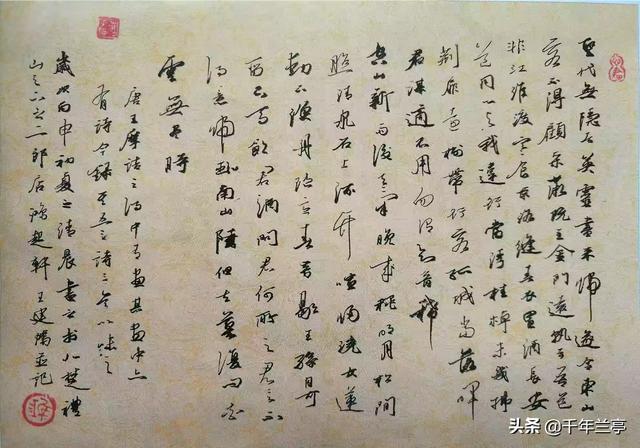 聖代無隱者英靈盡來歸遂令東山
客不得顧采薇既至金門遠孰云吾道
非江淮渡寒食京洛縫春衣置酒長安
道同心與我違行當浮桂棹未幾拂
荆扉遠樹帶行客孤城當落暉
吾謀適不用勿謂知音稀
空山新雨後天氣晚來秋明月松間
照清泉石上流竹喧歸浣女蓮
動下漁舟随意春芳歇王孫自可
留下馬飲君酒問君何所之君言不
得意歸卧南山陲但去莫復問白
雲無盡時
唐王摩詰之詩中有畫其畫中亦
有詩今録其五言詩三首以咏之
歲次丙申初夏之清晨書
王建鴻并記
头条 @千年兰亭